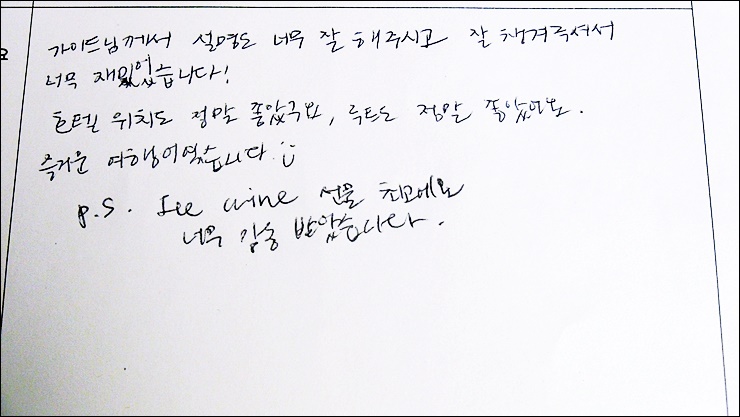 요
가이드님께서 설명도 너무 잘 해주시고 잘 챙겨주셔서
너무 재밌었습니다!
호텔 위치도 정말 좋았구요, 루트도 정말 좋았어요.
즐거운 여행이었습니다 :)
p.s. Ice wine 선물 최고에요
너무 감동 받았습니다.